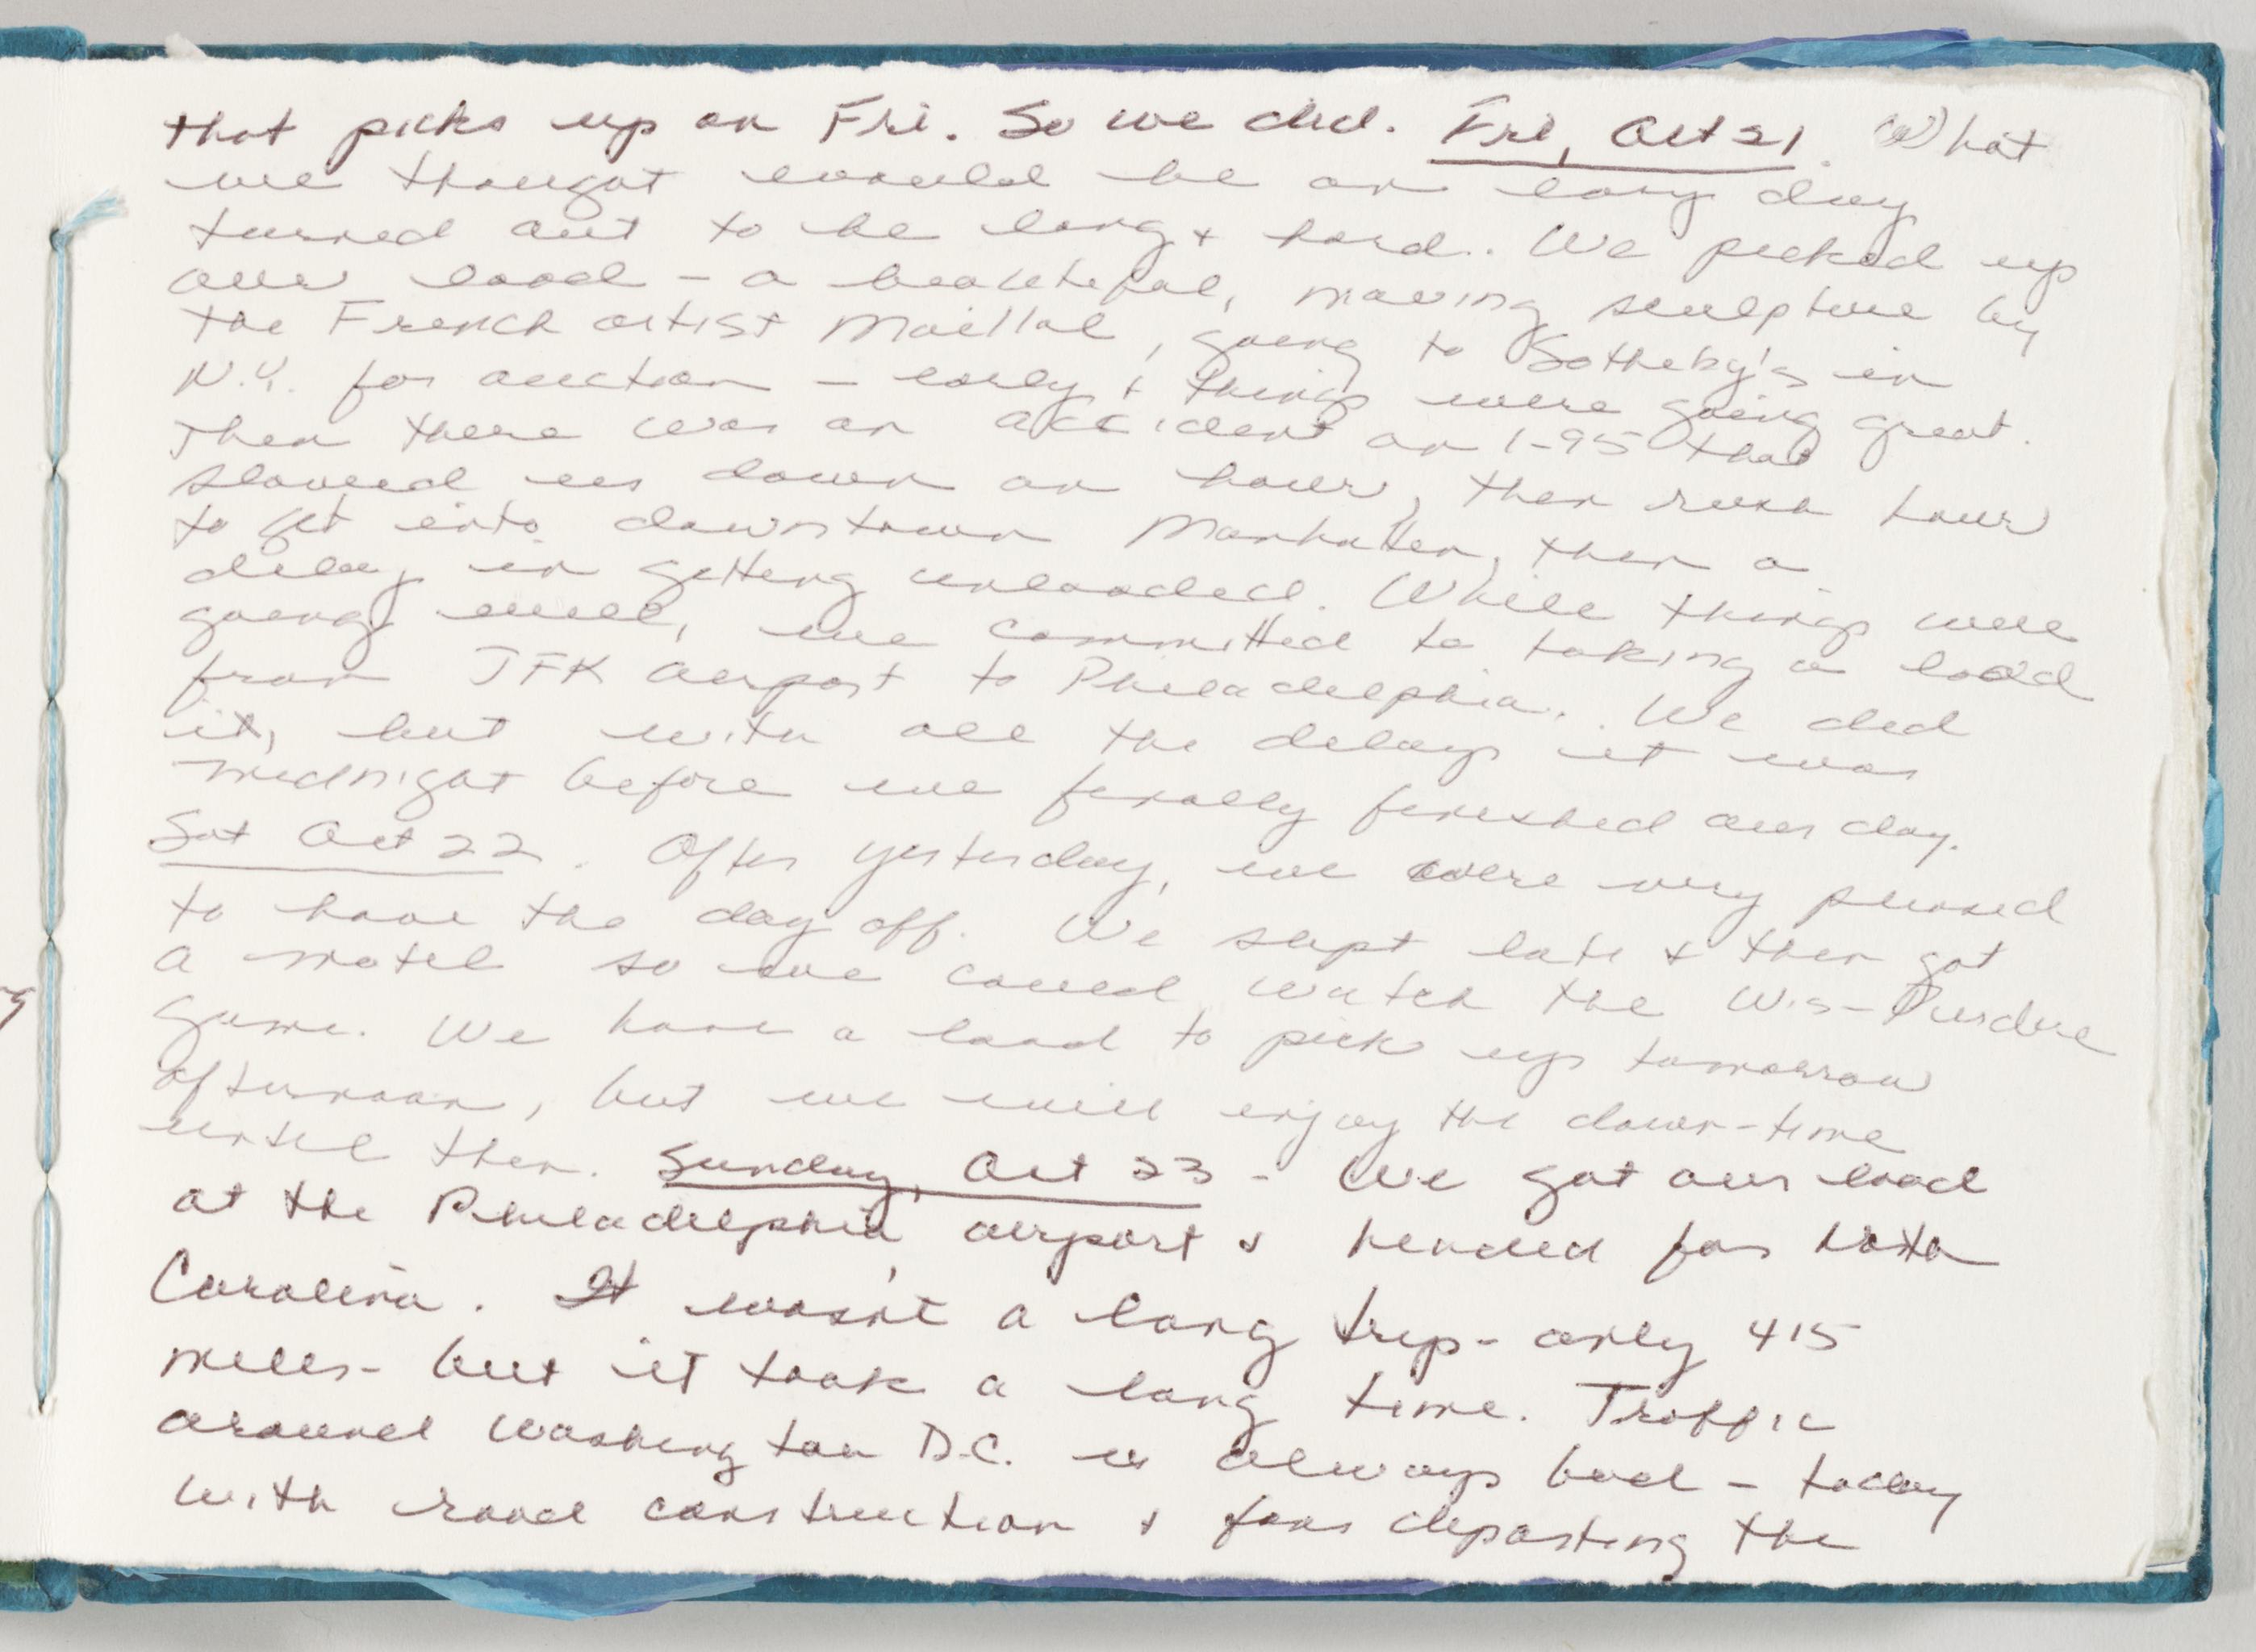 that picks up on Fri. So we did. Fri, Oct 21. What
we thought would be an easy day
turned out to be long & hard. We picked up
our load - a beautiful, moving sculpture by
the French artist Maillol, going to Sotheby's in
N.Y. for auction - early & things were going great.
Then there was an accident on I-95 that
slowed us down an hour, then rush hour
to get into downtown Manhatten, then a
delay in getting unloaded. While things were
going well, we committed to taking a load
from JFK airport to Philadelphia. We did
it, but with all the delays it was
midnight before we finally finished our day.
Sat Oct 22. After yesterday, we were very pleased
to have the day off. We slept late & then got
a motel so we could watch the Wis-Purdue
game. We have a load to pick up tomorrow
afternoon, but we will enjoy the down-time
until then. Sunday, Oct 23 - We got our load
at the Philadelphia airport & headed for North
Carolina. It wasn't a long trip - only 415
miles - but it took a long time. Traffic
around Washington D.C. is always bad - today
with road construction & fans departing the